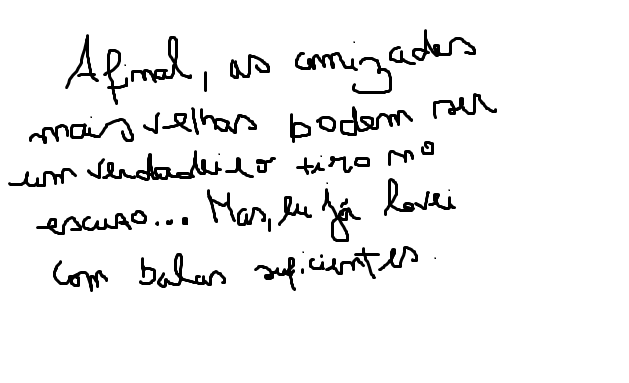 Afinal, as amizades
mais velhas podem ser
um verdadeiro tiro no
escuro... Mas, eu já levei
com balas suficientes.